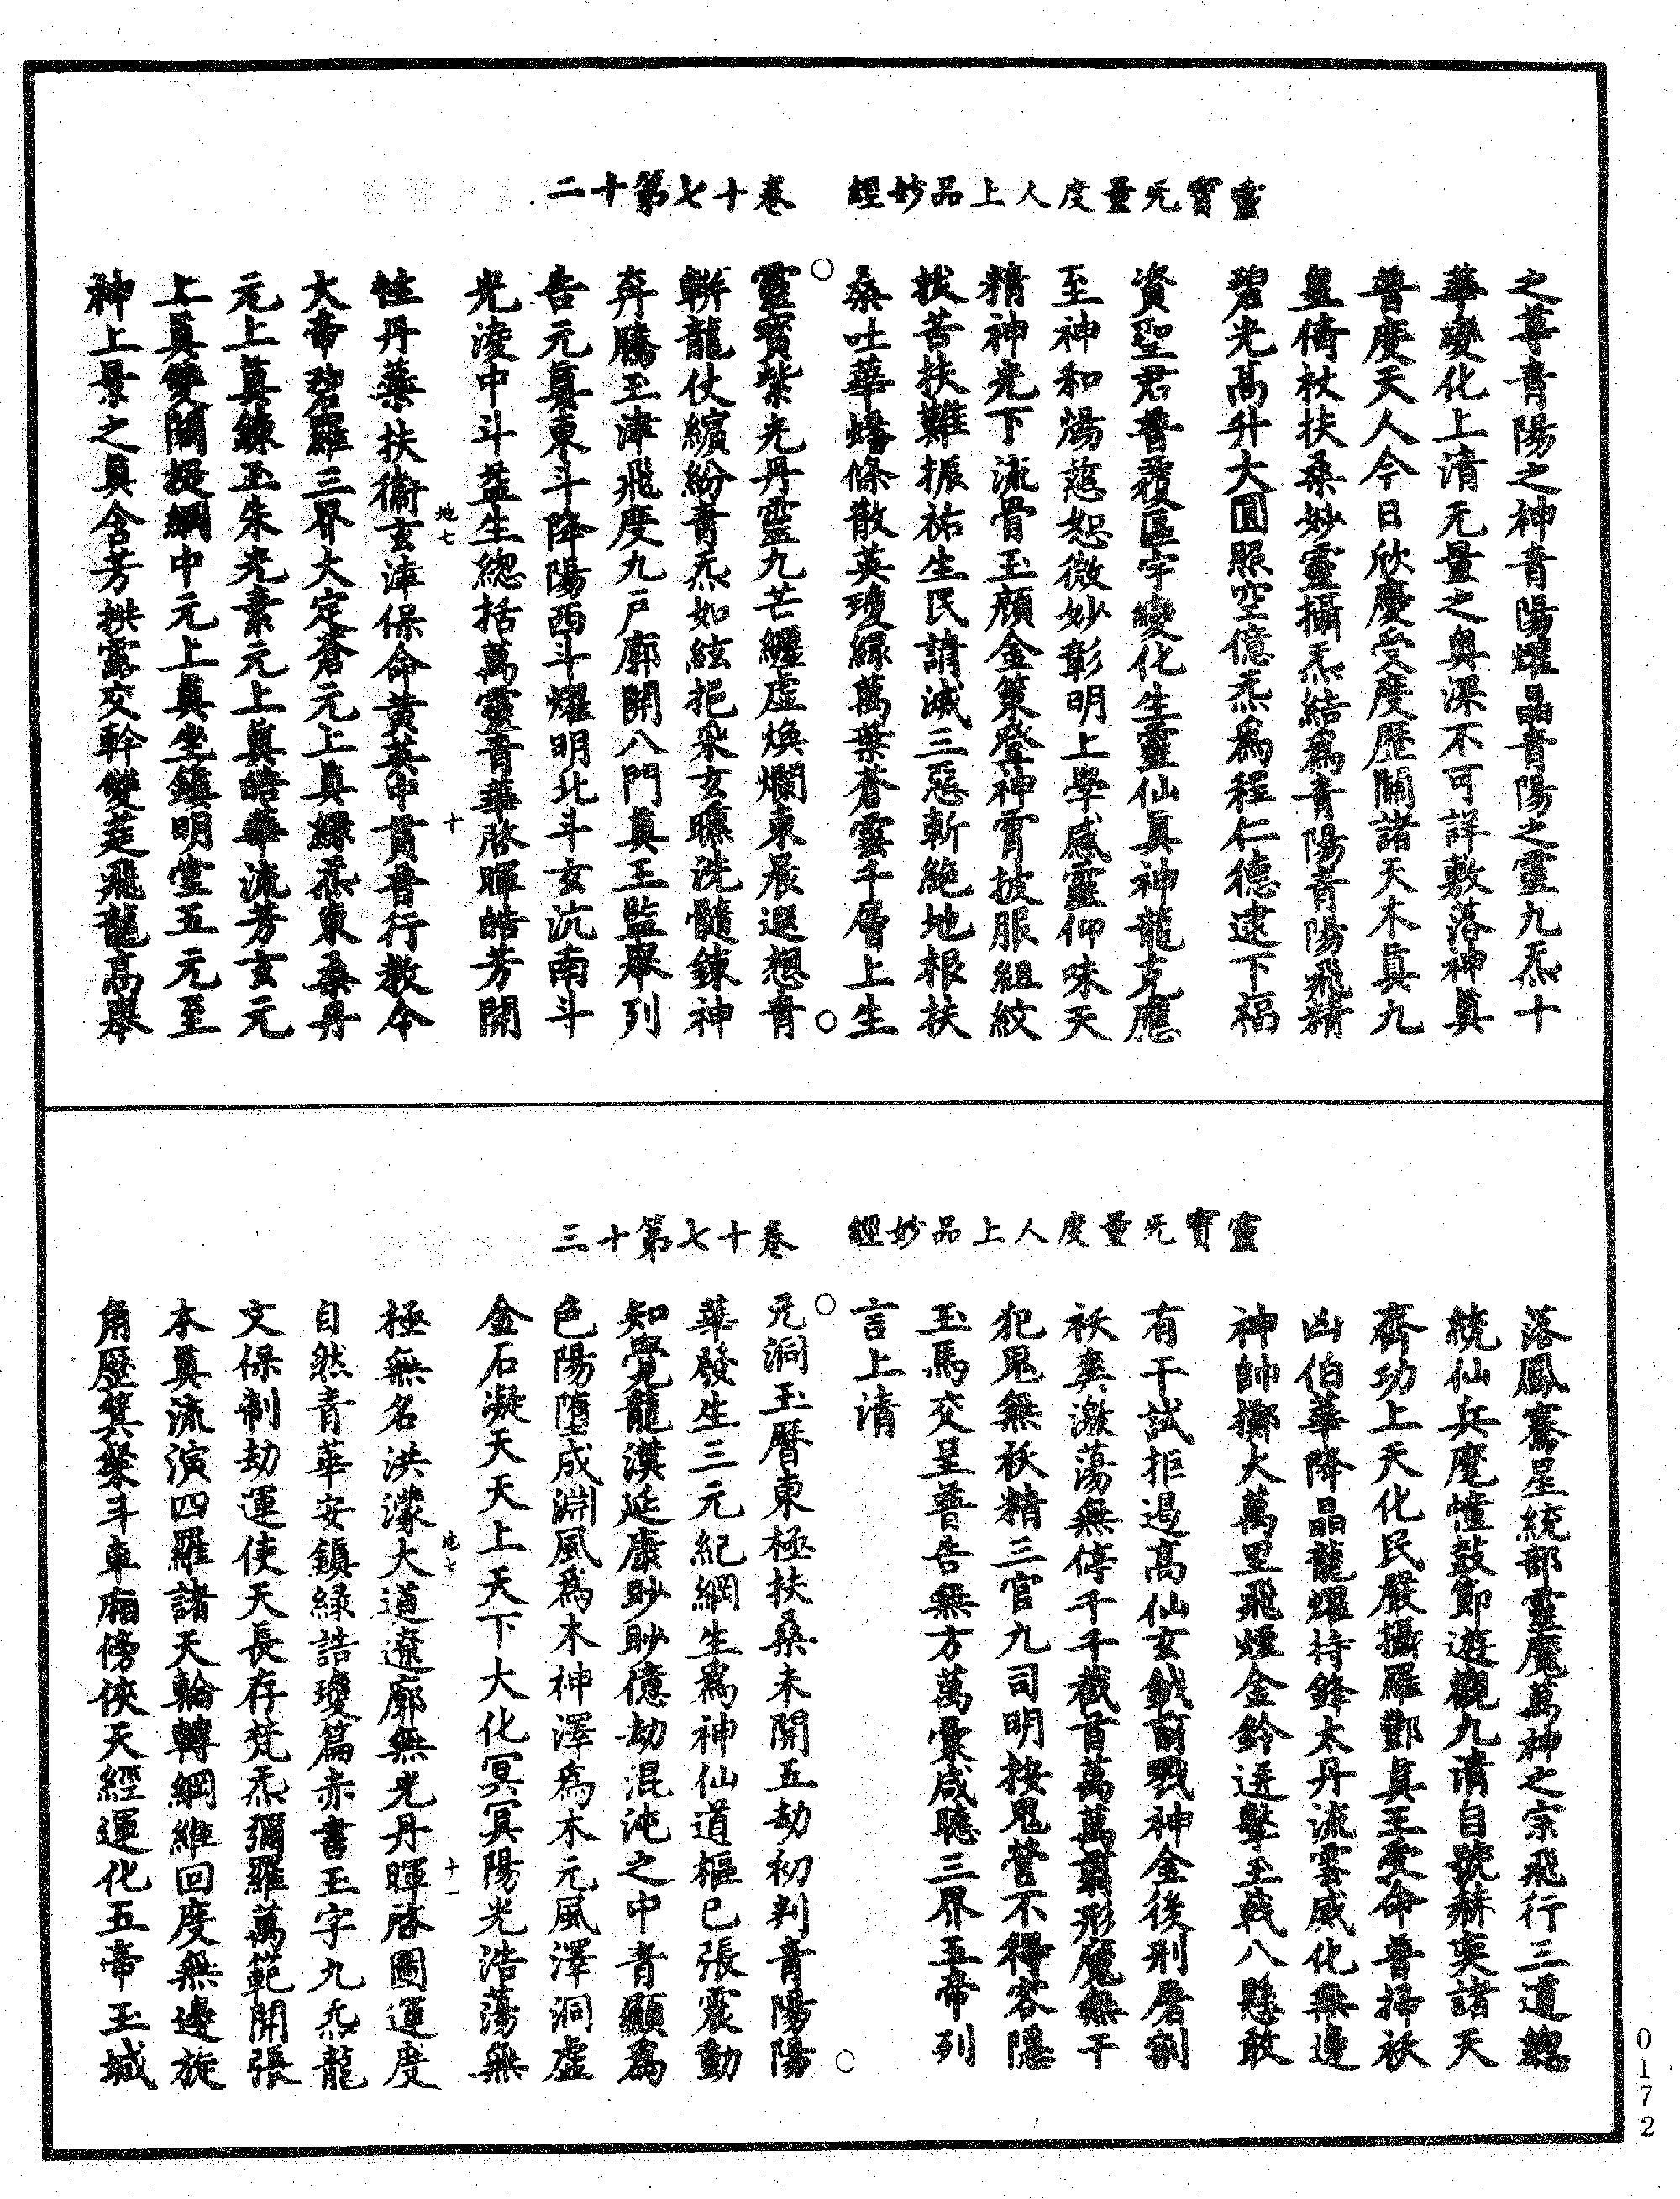 靈寶无量度人上品妙經　卷十七第十二
之尊青陽之神青陽耀晶青陽之靈九炁十
華變化上清无量之奧深不可詳敷落神眞
普度天人今日欣慶受度歷關諸天木眞九
皇倚杖扶桑妙靈攝炁結爲青陽青陽飛精
碧光高升大圓照空億炁爲程仁德逮下福
資聖君普覆區宇變化生靈仙眞神龍克應
至神和煬慈恕微妙彰明上學感靈仰味天
精神光下流骨玉顔金策登神霄披服組紋
拔苦扶難振祐生民請滅三惡斬絶地根扶
桑吐華蟠條散英瓊綠萬葉蒼雲千層上生
靈寶紫光丹靈九芒纏虛煥爛東辰遐想青
軿龍仗繽紛青炁如絃挹采玄曦洗髓鍊神
奔騰玉津飛度九戸廓開八門眞王監舉列
告元眞東斗降陽西斗耀明北斗玄沆南斗
光凌中斗益生總括萬靈青華啓暉皓芳開
性丹藥扶衞玄津保命黄英中貫普行教令
地七　十
大帝碧羅三界大定蒼元上眞綠炁東桑丹
元上眞鍊玉朱光素元上眞皓華流芳玄元
上眞雙關提綱中元上眞坐鎮明堂五元至
神上景之眞含芳拱露交幹雙莛飛龍高舉
靈寶无量度人上品妙經　卷十七第十三
落鳳騫星統部靈魔萬神之宗飛行三道總
統仙兵麾幢鼓節遊觀九清自號赫奕諸天
齊功上天化民嚴攝羅酆眞王受命普掃祅
凶伯華降晶龍耀持鋒太丹流雲威化無邊
神帥擲大萬里飛煙金鈴迸擊玉戟八懸敢
有干試拒遏高仙玄鉞前戮神金後刑屠割
祅羣激蕩無停千千截首萬萬翦形魔無干
犯鬼無祅精三官九司明按鬼營不得容隱
玉馬交呈普告無方萬彙咸聽三界五帝列
言上清
元洞玉曆東極扶桑未開五劫初判青陽陽
華發生三元紀綱生爲神仙道樞已張震動
知覺龍漢延康眇眇億劫混沌之中青顯爲
色陽墮成淵風爲木神澤爲木元風澤洞虛
金石凝天天上天下大化冥冥陽光浩蕩無
極無名洪濛大道遼廓無光丹暉啓圖運度
地七　十一
自然青華安鎮綠誥瓊篇赤書玉字九炁龍
文保制劫運使天長存梵炁彌羅萬範開張
木眞流演四羅諸天輪轉綱維回度無邊旋
角歷箕槃斗車廂傍俠天經運化五帝玉城
0172